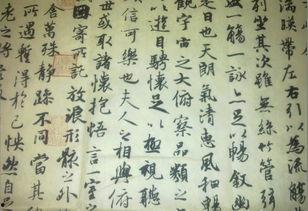 湍暎帶左右引以為流觴
列坐其次雖無絲竹管弦
一觴一詠亦足以暢敘幽
是日也天朗氣清惠風和暢
觀宇宙之大俯察品類之
以遊目騁懷足以極視聽
信可樂也夫人之相與俯
世或取諸懷抱悟言一室之
因寄所託放浪形骸之外
舍萬殊靜躁不同當其
所遇暫得於己怏然自
老之將